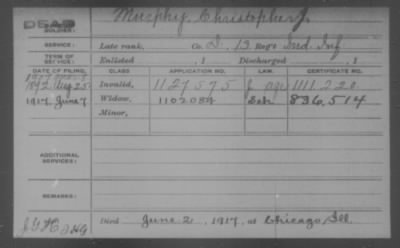 DEAD
SOLDIER: Murphy, Christopher J.
SERVICE: Late rank, Co. D, 13 Reg't Ind Inf
TERM OF SERVICE: Enlisted , 1 Discharged , 1
DATE OF FILING. CLASS APPLICATION NO. LAW. CERTIFICATE NO.
1892 Aug 25 Invalid, 1127575 1111220
1917 June 7 Widow, 1102084 836,514
Minor,
ADDITIONAL SERVICES:
REMARKS:
Died June 2, 1917, at Chicago Ill.